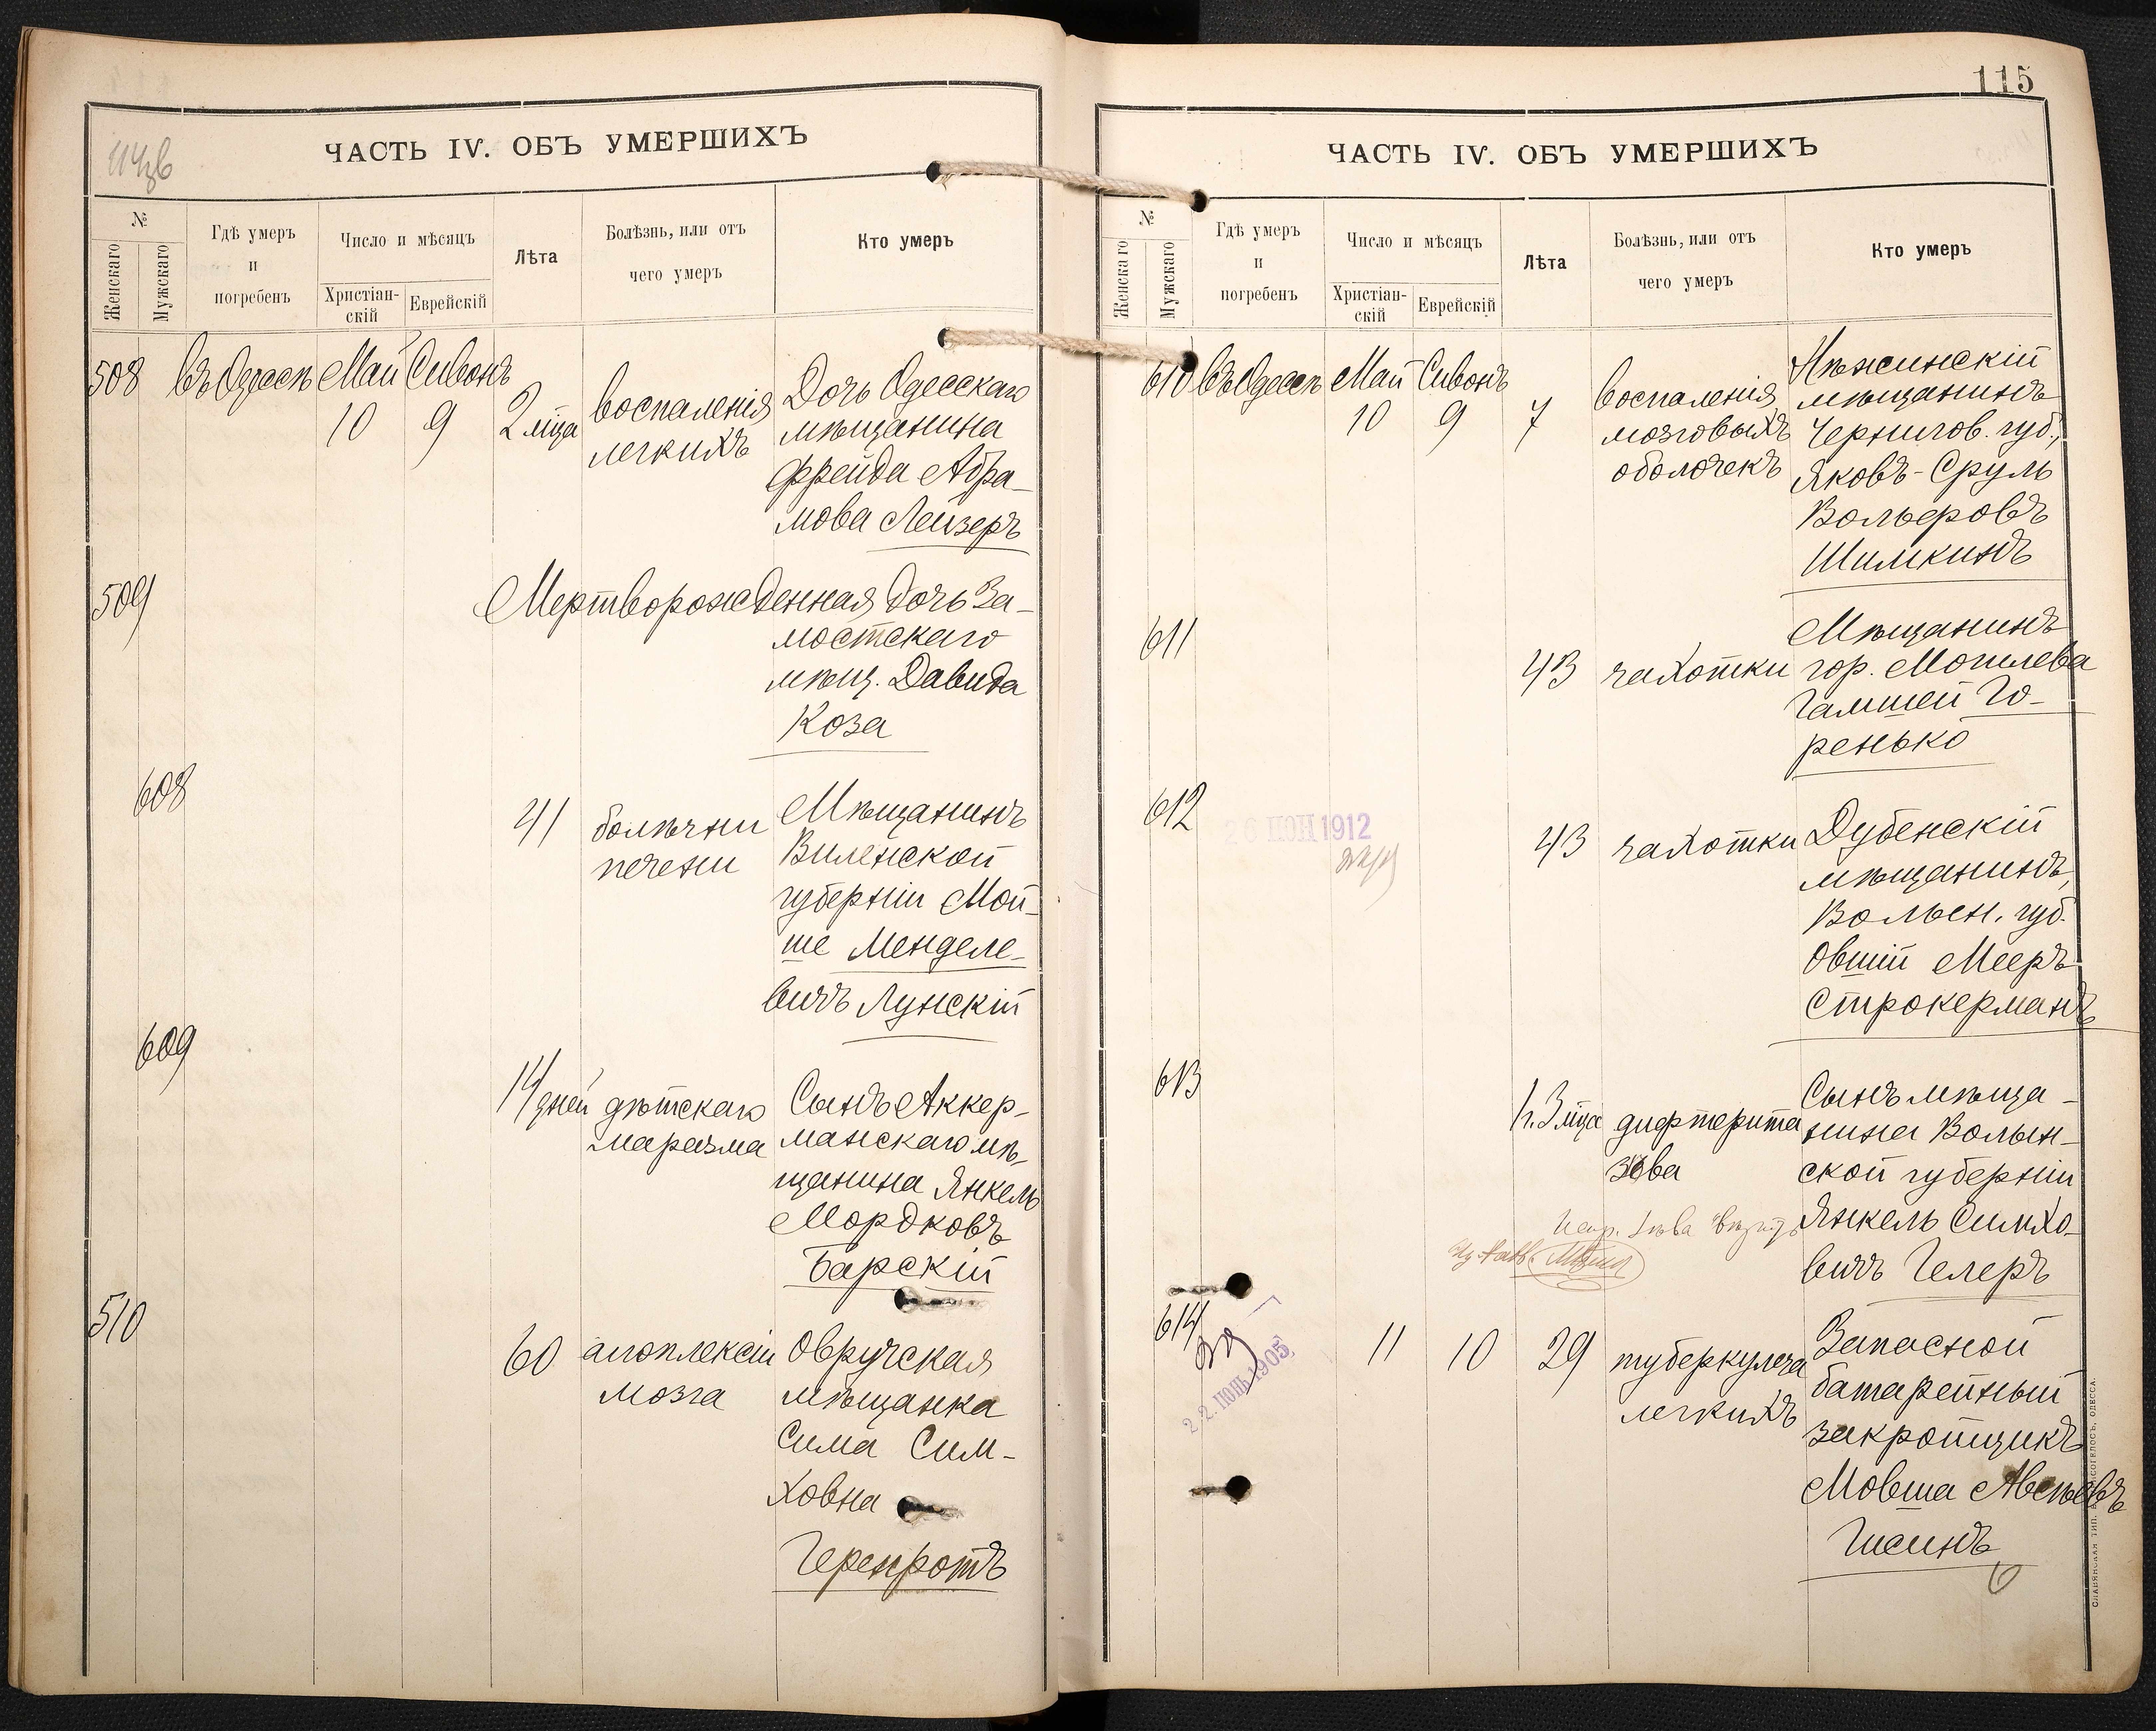 ЧАСТЬ IV. ОБЪ УМЕРШИХЪ
№
Женскаго
Мужскаго
Гдѣ умеръ
и
погребенъ
Число и мѣсяцъ
Христіан-
скій
Еврейскій
Лѣта
Болѣзнь, или отъ
чего умеръ
Кто умеръ
508 въ Одессѣ Май Сивонъ
10 9 2 мѣца
воспаленія
легкихъ
Дочь Одесскаго
мѣщанина
Фрейда Абра-
мова Лейзеръ
509
Мертворожденная дочь За-
мостскаго
мѣщ. Давида
Коза
608
41
болѣзни
печени
Мѣщанинъ
Виленской
губерніи Мой-
ше Менделе-
вичъ Лунскій
609
14 дней
дѣтскаго
маразма
Сынъ Аккер-
манскаго мѣ-
щанина Янкель
Мордковъ
Барскій
510
60
апоплексіи
мозга
Овручская
мѣщанка
Сима Сим-
ховна
Геренротъ
115
ЧАСТЬ IV. ОБЪ УМЕРШИХЪ
№
Женскаго
Мужскаго
Гдѣ умеръ
и
погребенъ
Число и мѣсяцъ
Христіан-
скій
Еврейскій
Лѣта
Болѣзнь, или отъ
чего умеръ
Кто умеръ
610 въ Одессѣ Май Сивонъ
10 9 7
воспаленія
мозговыхъ
оболочекъ
Нѣжинскій
мѣщанинъ
Чернигов. губ.,
Яковъ-Сруль
Вольеровъ
Шимкинъ
611
43 чахотки
Мѣщанинъ
гор. Могилева
Гамшей Го-
ренько
612
26 ІЮН 1912
43 чахотки
Дубенскій
мѣщанинъ,
Волын. губ.
Овшій Мееръ
Строкерманъ
613
1 г. 3 мѣца
дифтерита
зѣва
Сынъ мѣща-
нина Волын-
ской губерніи
Янкель Симхо-
вичъ Гелеръ
614
22. ІЮНЬ 1905
11 10 29
туберкулеза
легкихъ
Запасной
батарейный
закройщикъ
Мовша Авсѣевъ
Гисинъ
СЛАВЯНСКАЯ ТИП. ОДЕССА.